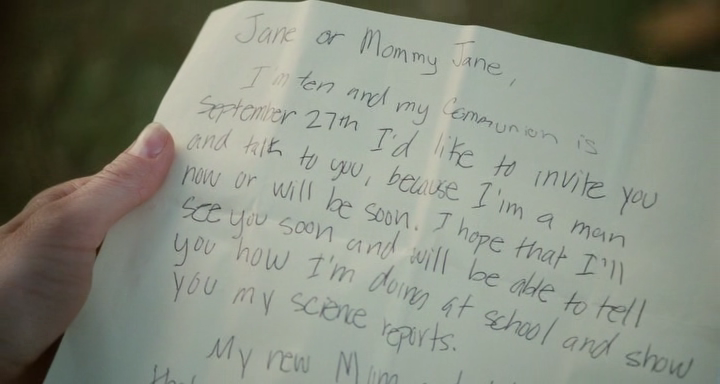 Jane or Mommy Jane,
I'm ten and my Communion is
September 27th I'd like to invite you
and talk to you, because I'm a man
now or will be soon. I hope that I'll
see you soon and will be able to tell
you how I'm doing at school and show
you my science reports.
My new Mum